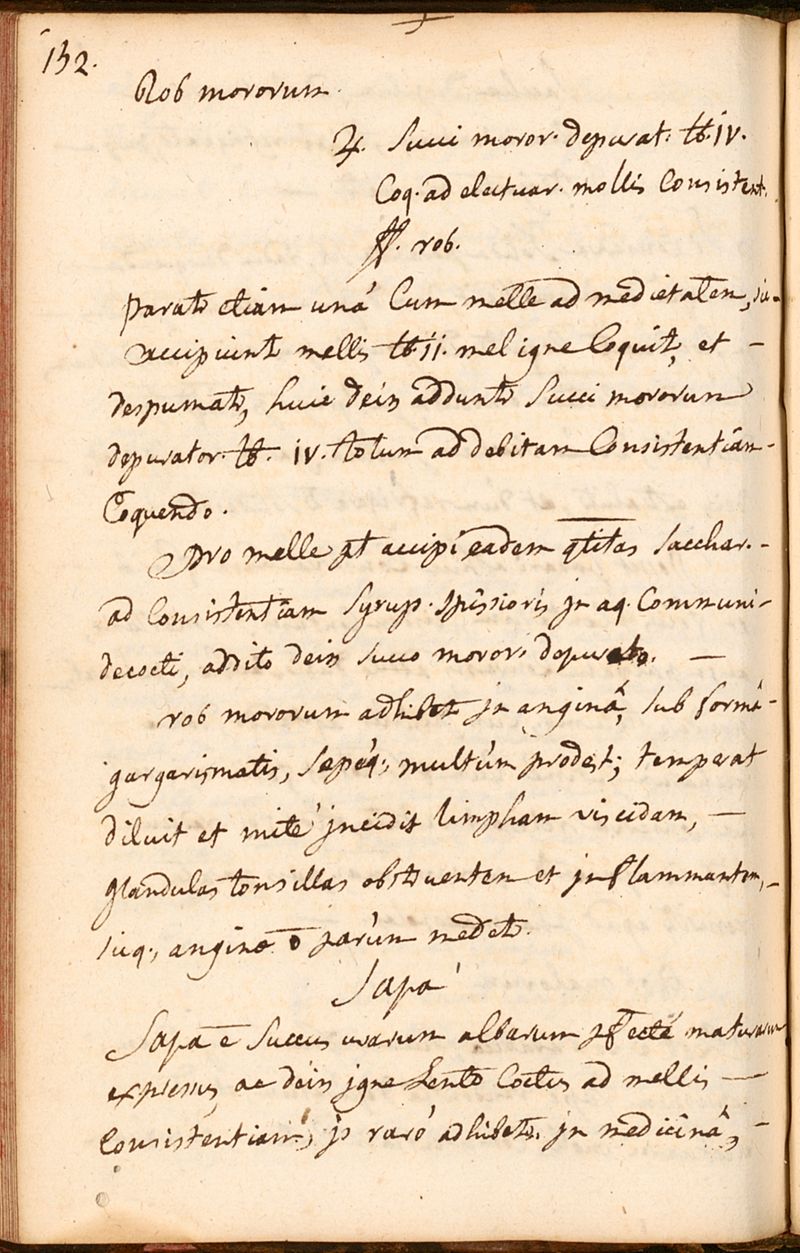 132.
Rob mororum
♃. Succi moror. depurat. ℔. iv.
Coq. ad electuar. mollis Consistent.
ff. rob.
parat~ etiam unâ Cum melle ad medietatem, sic
accipiunt~ mellis ℔. ii. mel igne Coquit~, et –
despumat~, huic dein addunt~ Succi mororum
depurator. ℔. iv. totum ad debitam Consistentiam
Coquendo.
pro melle pt accipi eadem qtitas sacchar.
ad Consistentiam Syrup. spissioris jn aq. Communi
decocti, addito dein succo moror. depurato. —
rob mororum adhibet~ jn anginâ, sub formâ
gargarismatis, sæpéq;, multùm prodest; temperat
diluit et mité jncidit limpham viscidam, —
glandulas tonsillas obstruentem et jnflammantem,
sicq;, anginæ ō parùm medet~.
Sapa
Sapa ē Succus uvarum albarum pfecté maturarum
expressus, ac dein jgne Lento Coctus ad mellis —
Consistentiam, js raró adhibet~. jn medicinâ, –